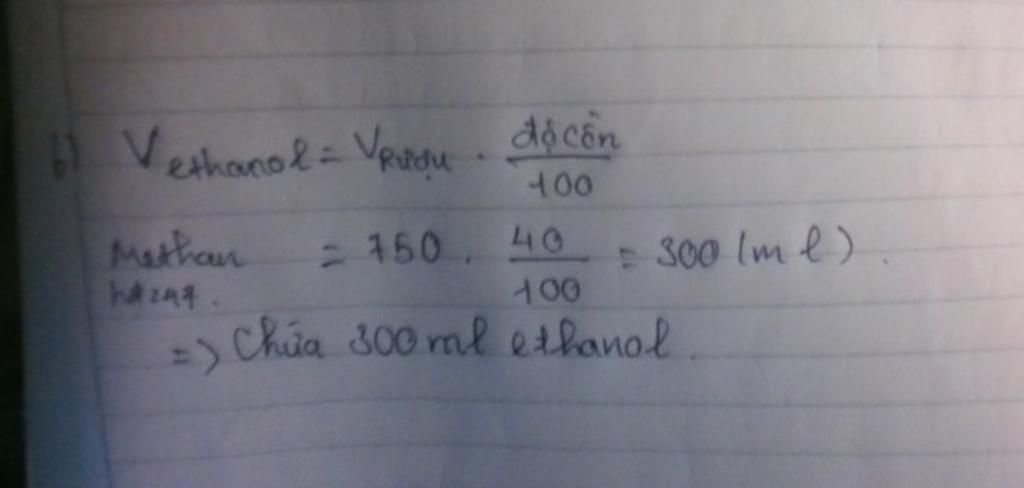 b) V ethanol = V Rượu . độ cồn / 100
= 750 . 40 / 100 = 300 (ml).
=> Chứa 300 ml ethanol.